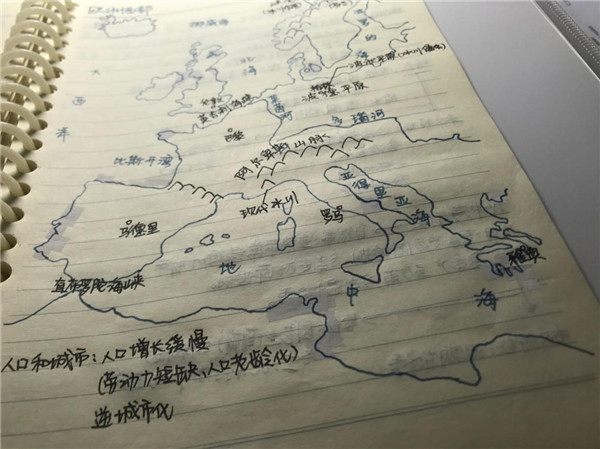 欧洲西部
挪威海
大
西
洋
北
海
波
罗
的
海
波德平原(冰川
伦敦
英吉利海峡
莱茵河
柏林
平原
巴黎
多瑙河
比斯开湾
阿尔卑斯山脉
亚
得
里
亚
海
马德里
现代冰川
罗马
直布罗陀海峡
地
中
海
人口和城市:人口增长缓慢
(劳动力短缺、人口老龄化)
逆城市化